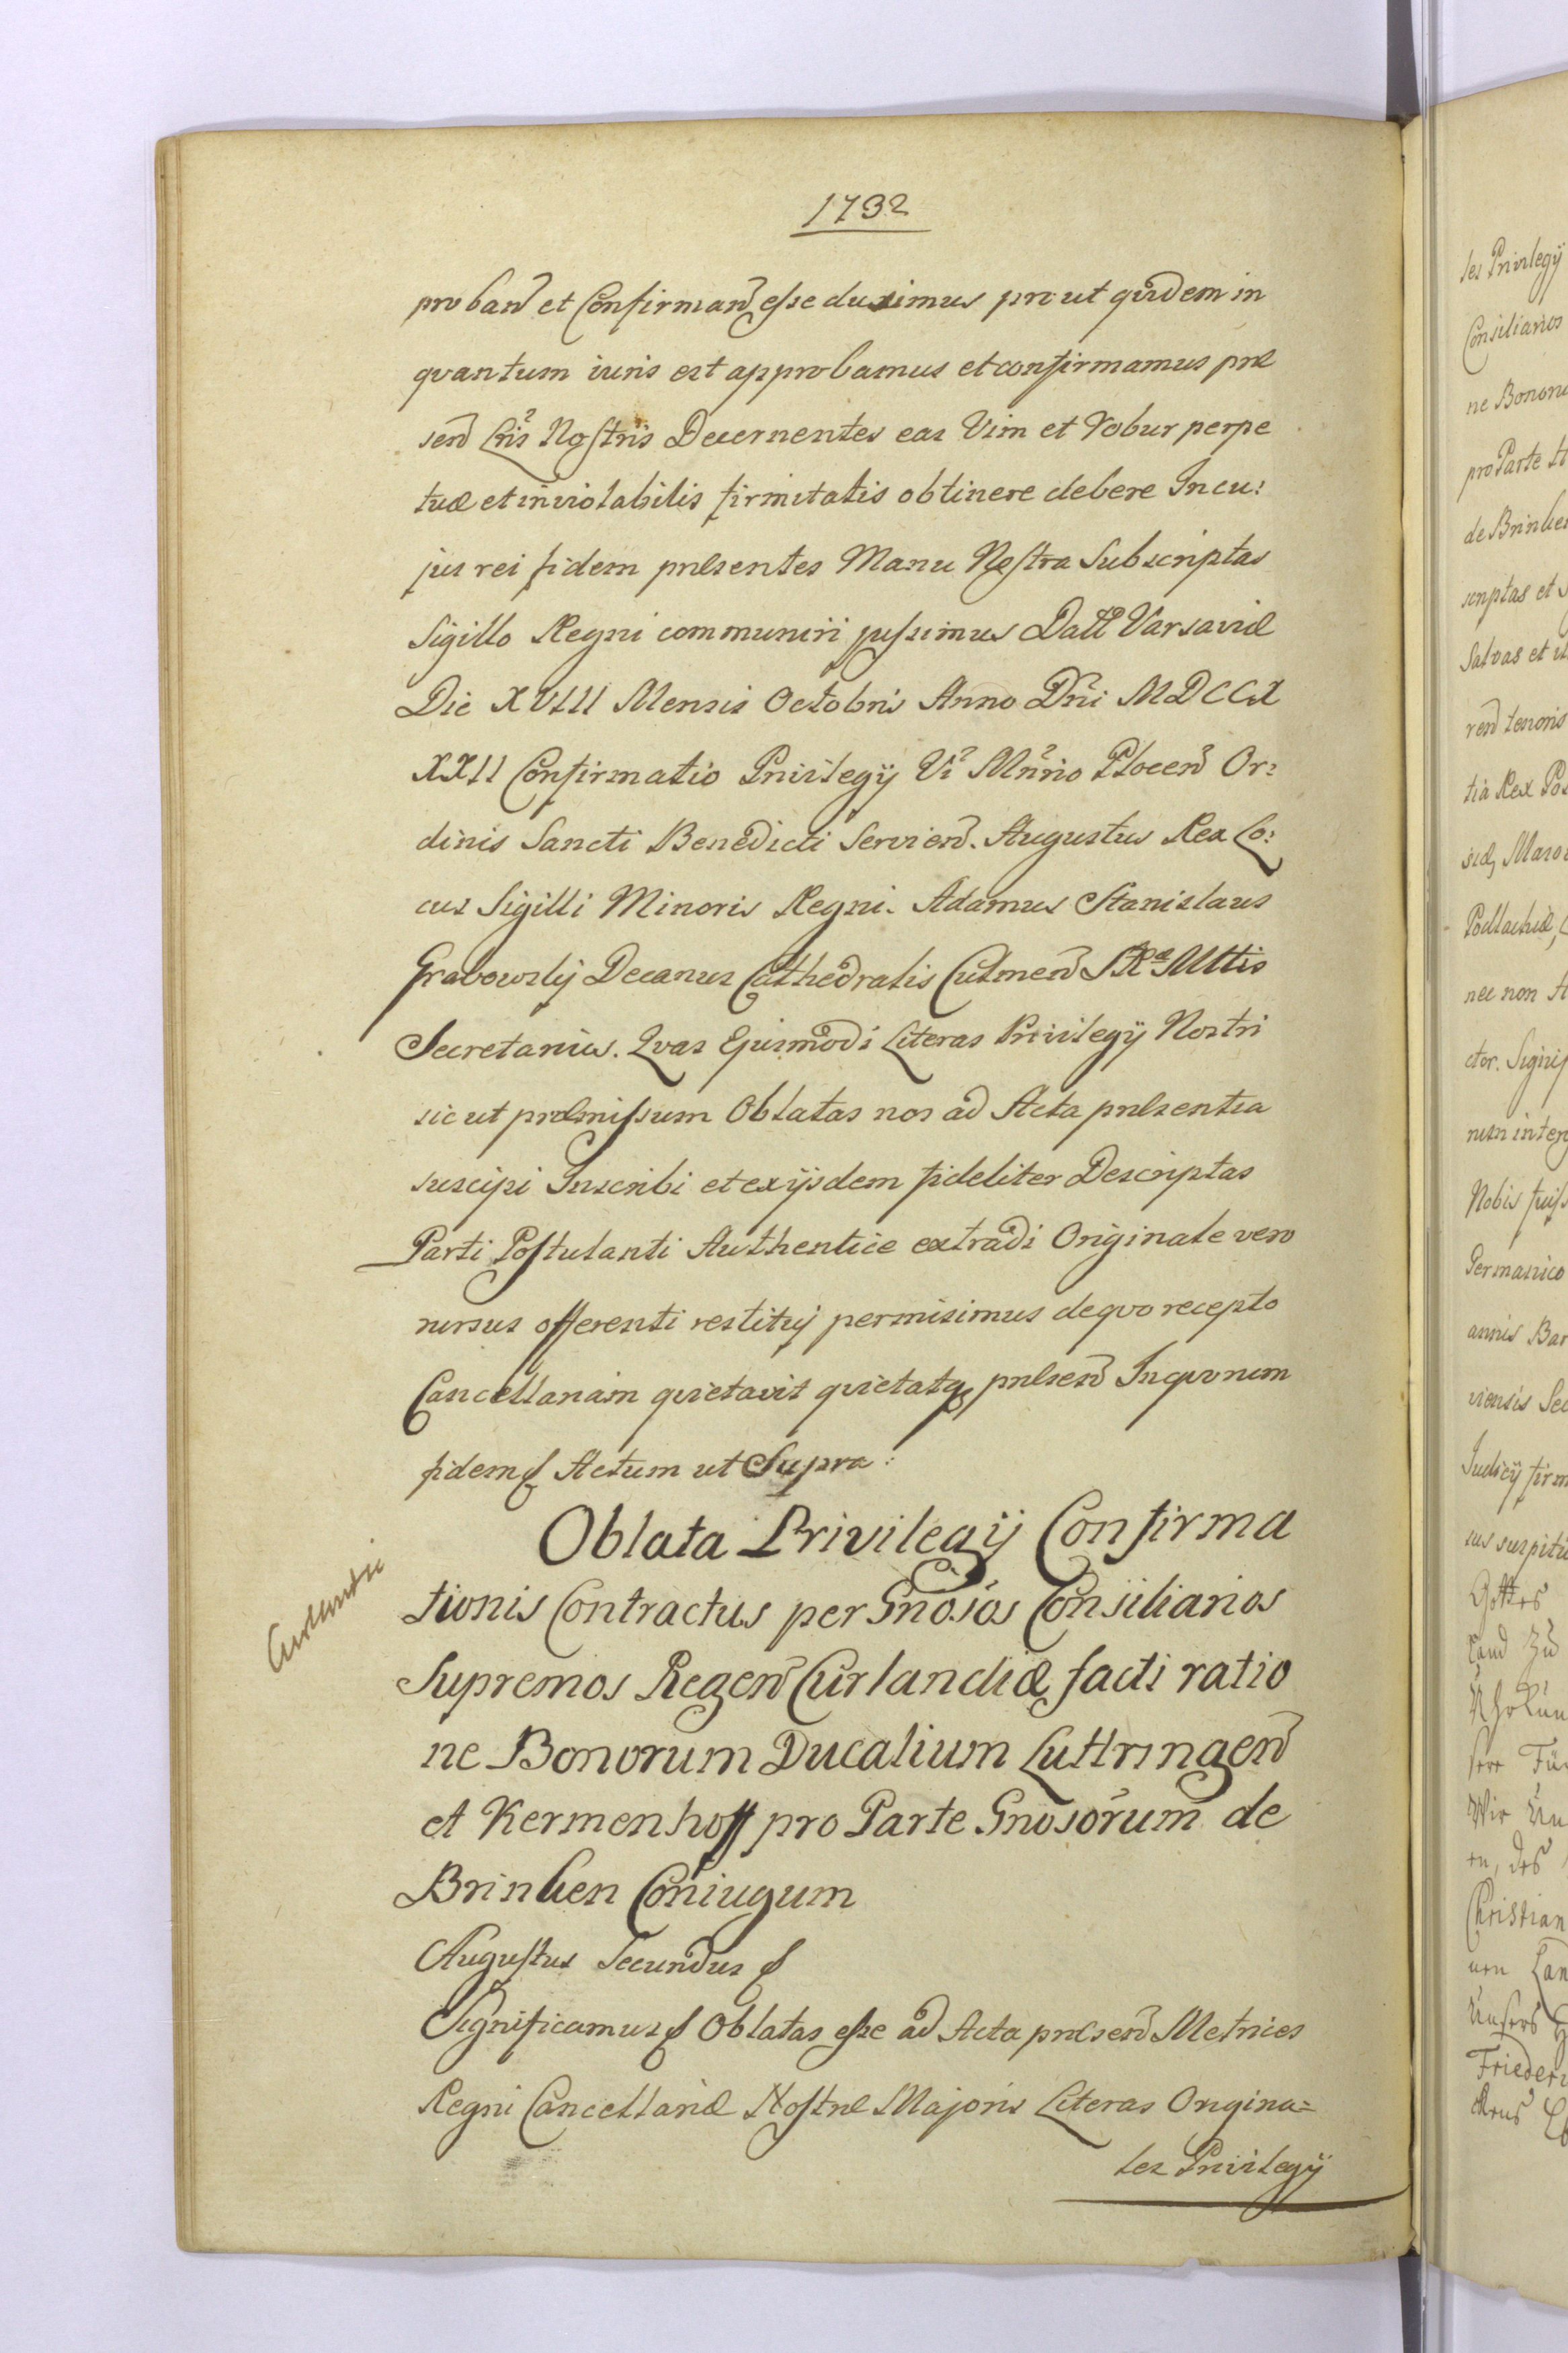 1732
proband et Confirmand esse duximus prout quidem in
quantum iuris est approbamus et confirmamus præ
send Lris Nostris Decernentes eas Vim et robur perpe
tuæ et inviolabilis firmitatis obtinere debere Incu:
jus rei fidem præsentes Manu Nostra Subscriptas
Sigillo Regni communiri jussimus Datt Varsaviæ
Die XVIII Mensis Octobris Anno Dni MDCCX
XXII Confirmatio Privilegij Mnrio Plocen Or:
dinis Sancti Benedicti Servien. Augustus Rex Lo:
cus Sigilli Minoris Regni. Adamus Stanislaus
Grabowskij Decanus Cathedralis Culmen SRæ Mttis
Secretarius. Qvas Ejusmodi Literas Privilegij Nostri
sic ut præmissum Oblatas nos ad Acta præsentia
suscipi Inscribi et ex ijsdem fideliter Descriptas
Parti Postulanti Authentice extradi Originale vero
rursus offerenti restituj permisimus de qvo recepto
Cancellariam qvietavit qvietatq præsen In qvorum
fidem Actum ut Supra:
Oblata Privilegij Confirma
tionis Contractus per Gnosos Consiliarios
Supremos Regen Curlandiæ facti ratio
ne Bonorum Ducalium Luttringen
et Kermenhoff pro Parte Gnosorum de
Brinken Coniugum
Augustus Secundus
Significamus Oblatas esse ad Acta præsen Metrices
Regni Cancellariæ Nostræ Majoris Literas Origina=
les Privilegij
les Privilegij
Consiliarios
ne Bonor
pro Parte
de Brinken
scriptas et
Salvas et
ren tenoris
tia Rex
Podlachiæ,
nec non
ctor.
Nobis
annis
viensis
Judicij
Gottes
Land Zu
Wir
Christian